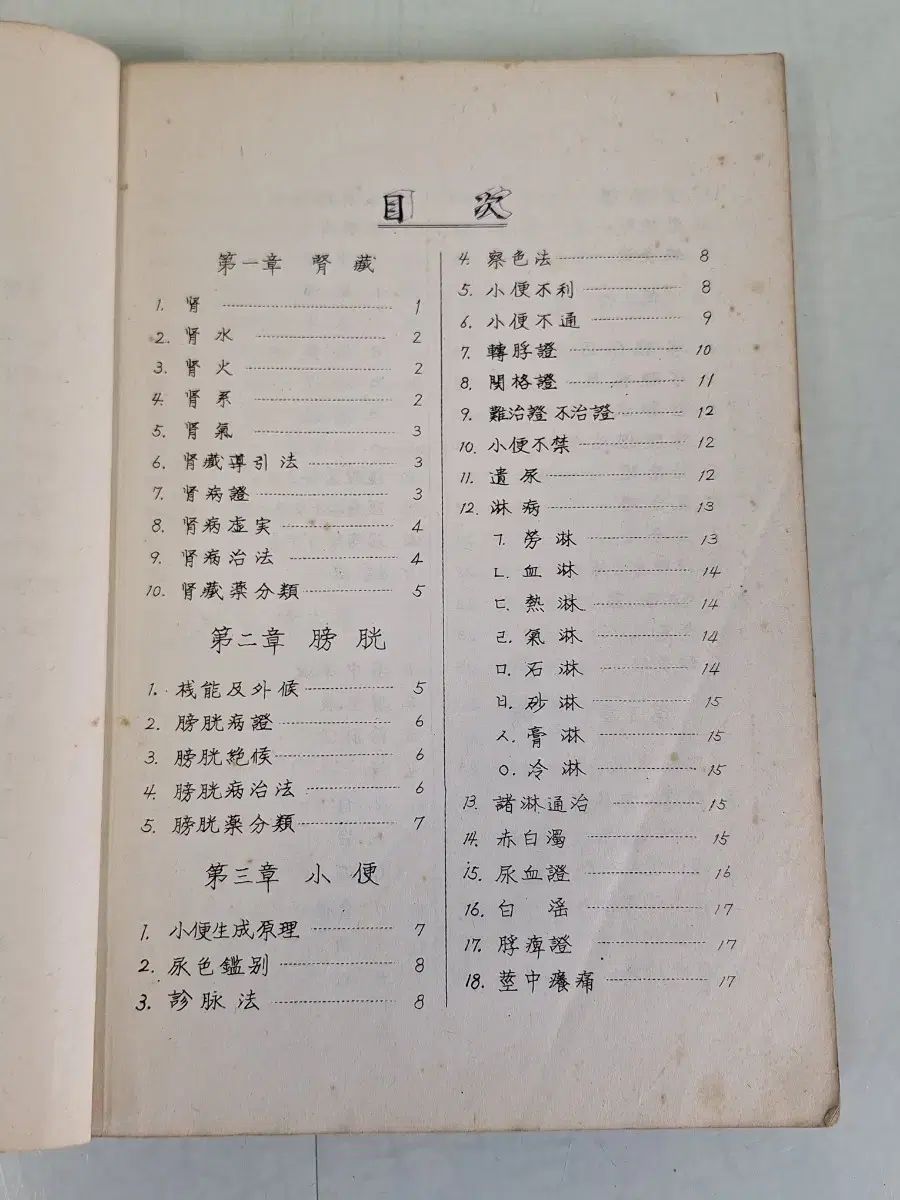 目 次
第一章 腎藏
1. 肾 1
2. 肾水 2
3. 肾火 2
4. 肾系 2
5. 肾氣 3
6. 肾藏導引法 3
7. 肾病證 3
8. 肾病虚実 4
9. 肾病治法 4
10. 肾藏薬分類 5
第二章 膀胱
1. 栈能及外候 5
2. 膀胱病證 6
3. 膀胱絶候 6
4. 膀胱病治法 6
5. 膀胱薬分類 7
第三章 小便
1. 小便生成原理 7
2. 尿色鑑别 8
3. 診脉法 8
4. 察色法 8
5. 小便不利 8
6. 小便不通 9
7. 轉脬證 10
8. 関格證 11
9. 難治證不治證 12
10. 小便不禁 12
11. 遺尿 12
12. 淋病 13
ㄱ. 勞淋 13
ㄴ. 血淋 14
ㄷ. 熱淋 14
ㄹ. 氣淋 14
ㅁ. 石淋 14
ㅂ. 砂淋 15
ㅅ. 膏淋 15
ㅇ. 冷淋 15
13. 諸淋通治 15
14. 赤白濁 15
15. 尿血證 16
16. 白滛 17
17. 脬痺證 17
18. 莖中癢痛 17